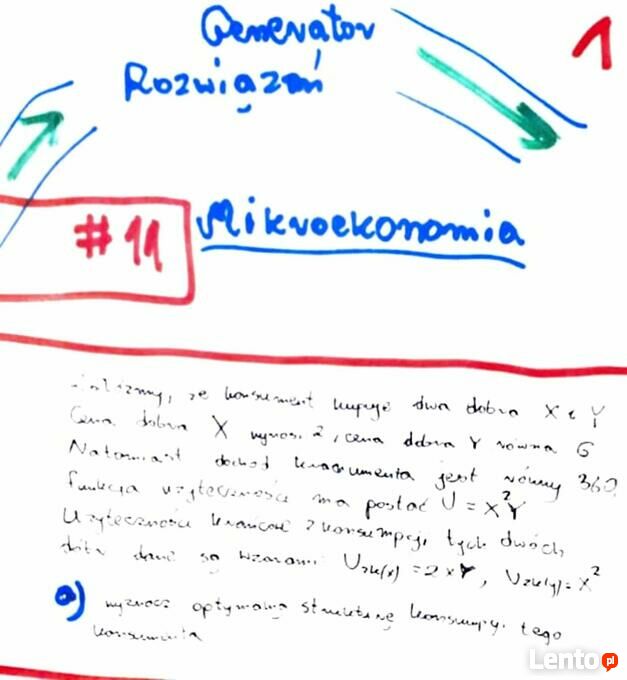 Generator
Rozwiązań
1
#11
Mikroekonomia
że konsument kupuje dwa dobra X i Y
Cena dobra X wynosi 2, cena dobra Y równa 6
Natomiast dochód konsumenta jest równy 360.
Funkcja użyteczności ma postać U = X²Y
Użyteczności krańcowe z konsumpcji tych dwóch
dóbr dane są wzorami: Uzk(x) = 2XY, Uzk(y) = X²
a) wyznacz optymalną strukturę konsumpcji tego
konsumenta
Lento.pl